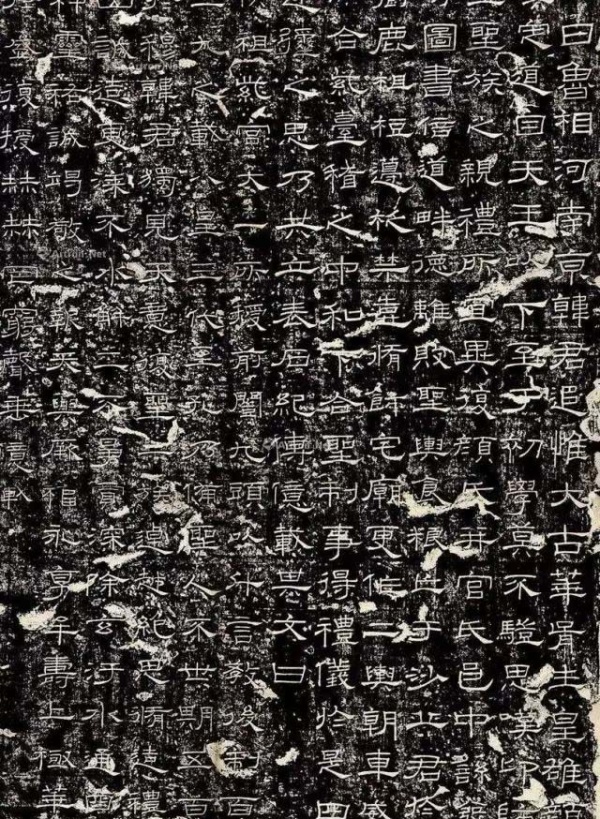 日魯相河南京韓君追惟大古華胥生皇雄顏
定道自天王以下至于初學莫不驥思嘆卬師
聖族之親禮所宜異復顏氏并官氏邑中繇發
圖書倍道畔德離敗聖輿食糧亡于沙丘君於
爵鹿柤梪籩柉禁壺脩飾宅廟更作二輿朝車威
合紫臺稽之中和下合聖制事得禮儀於是四
逴彌之思乃共立表石紀傳億載其文曰
俱祖紫宮大一所授前闓九頭以什言教後制百
三九之載八皇三代至孔乃備聖人不世期五百
穆韓君獨見天意復聖二族逴越絕思脩造禮
出誠造更漆不水解工不爭賈深除玄汙水通四
神靈祐誠竭敬之報天與厥福永享牟壽上極華
於盛復授赫赫罔窮聲垂億載
Artron.Net